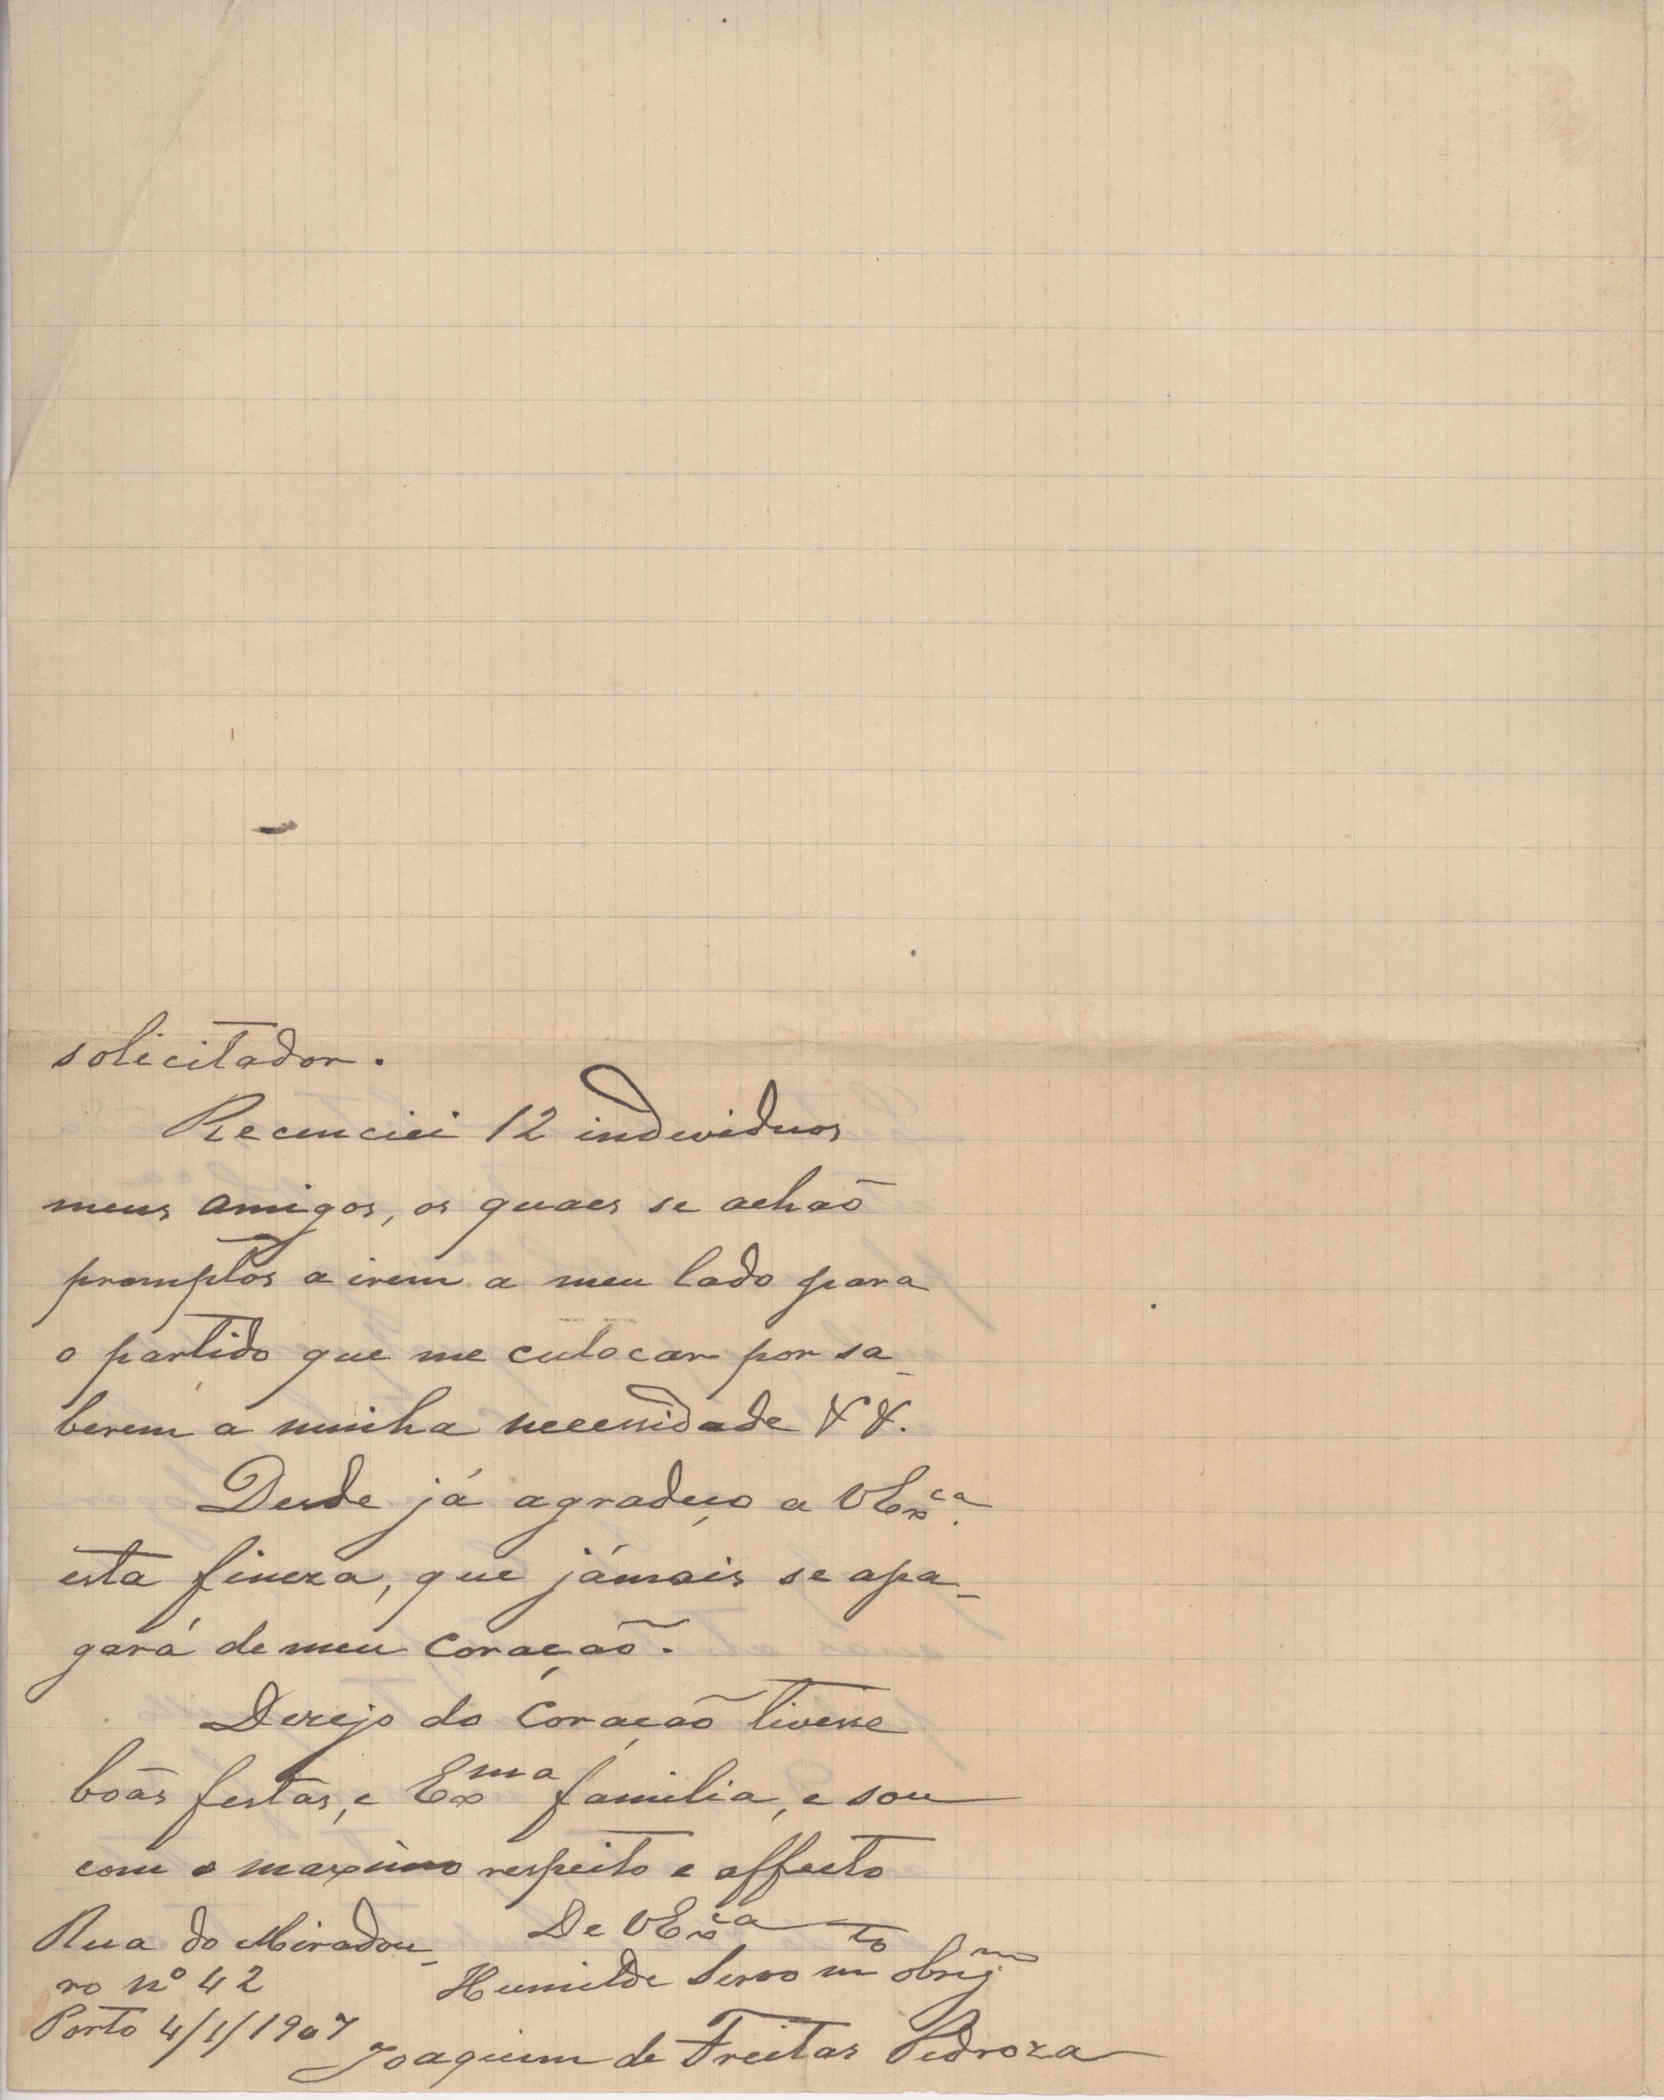 solicitador.
Recenciei 12 individuos
meus amigos, os quaes se achaõ
promptos a irem a meu lado para
o partido que me culocar por sa-
berem a minha necessidade & &.
Desde já agradeço a VEx.cia
esta fineza, que jámais se apa-
gará de meu Coraçaõ.
Dezejo do Coraçaõ tivesse
boãs festas, e Exma familia, e sou
com o maximo respeito e affecto
De VExcia
Rua do Miradou-
ro nº 42
Humilde Servo mto obrigmo
Porto 4/1/1907
Joaquim de Freitas Pedroza